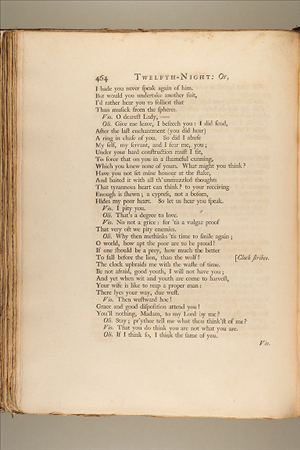 464 TWELFTH-NIGHT: Or,
I bade you never ſpeak again of him.
But would you undertake another ſuit,
I'd rather hear you to ſollicit that
Than muſick from the ſpheres.
Vio. O deareſt Lady, —
Oli. Give me leave, I beſeech you: I did ſend,
After the laſt enchantment (you did hear)
A ring in chaſe of you. So did I abuſe
My ſelf, my ſervant, and I fear me, you;
Under your hard conſtruction muſt I ſit,
To force that on you in a ſhameful cunning,
Which you knew none of yours. What might you think?
Have you not ſet mine honour at the ſtake,
And baited it with all th' unmuzzled thoughts
That tyrannous heart can think? to your receiving
Enough is ſhewn; a cypreſs, not a boſom,
Hides my poor heart. So let us hear you ſpeak.
Vio. I pity you.
Oli. That's a degree to love.
Vio. No not a grice: for 'tis a vulgar proof
That very oft we pity enemies.
Oli. Why then methinks 'tis time to ſmile again;
O world, how apt the poor are to be proud?
If one ſhould be a prey, how much the better
To fall before the lion, than the wolf? [Clock ſtrikes.
The clock upbraids me with the waſte of time.
Be not afraid, good youth, I will not have you;
And yet when wit and youth are come to harveſt,
Your wife is like to reap a proper man:
There lyes your way, due weſt.
Vio. Then weſtward hoe!
Grace and good diſpoſition attend you!
You'll nothing, Madam, to my Lord by me?
Oli. Stay; pr'ythee tell me what thou think'ſt of me?
Vio. That you do think you are not what you are.
Oli. If I think ſo, I think the ſame of you.
Vio.